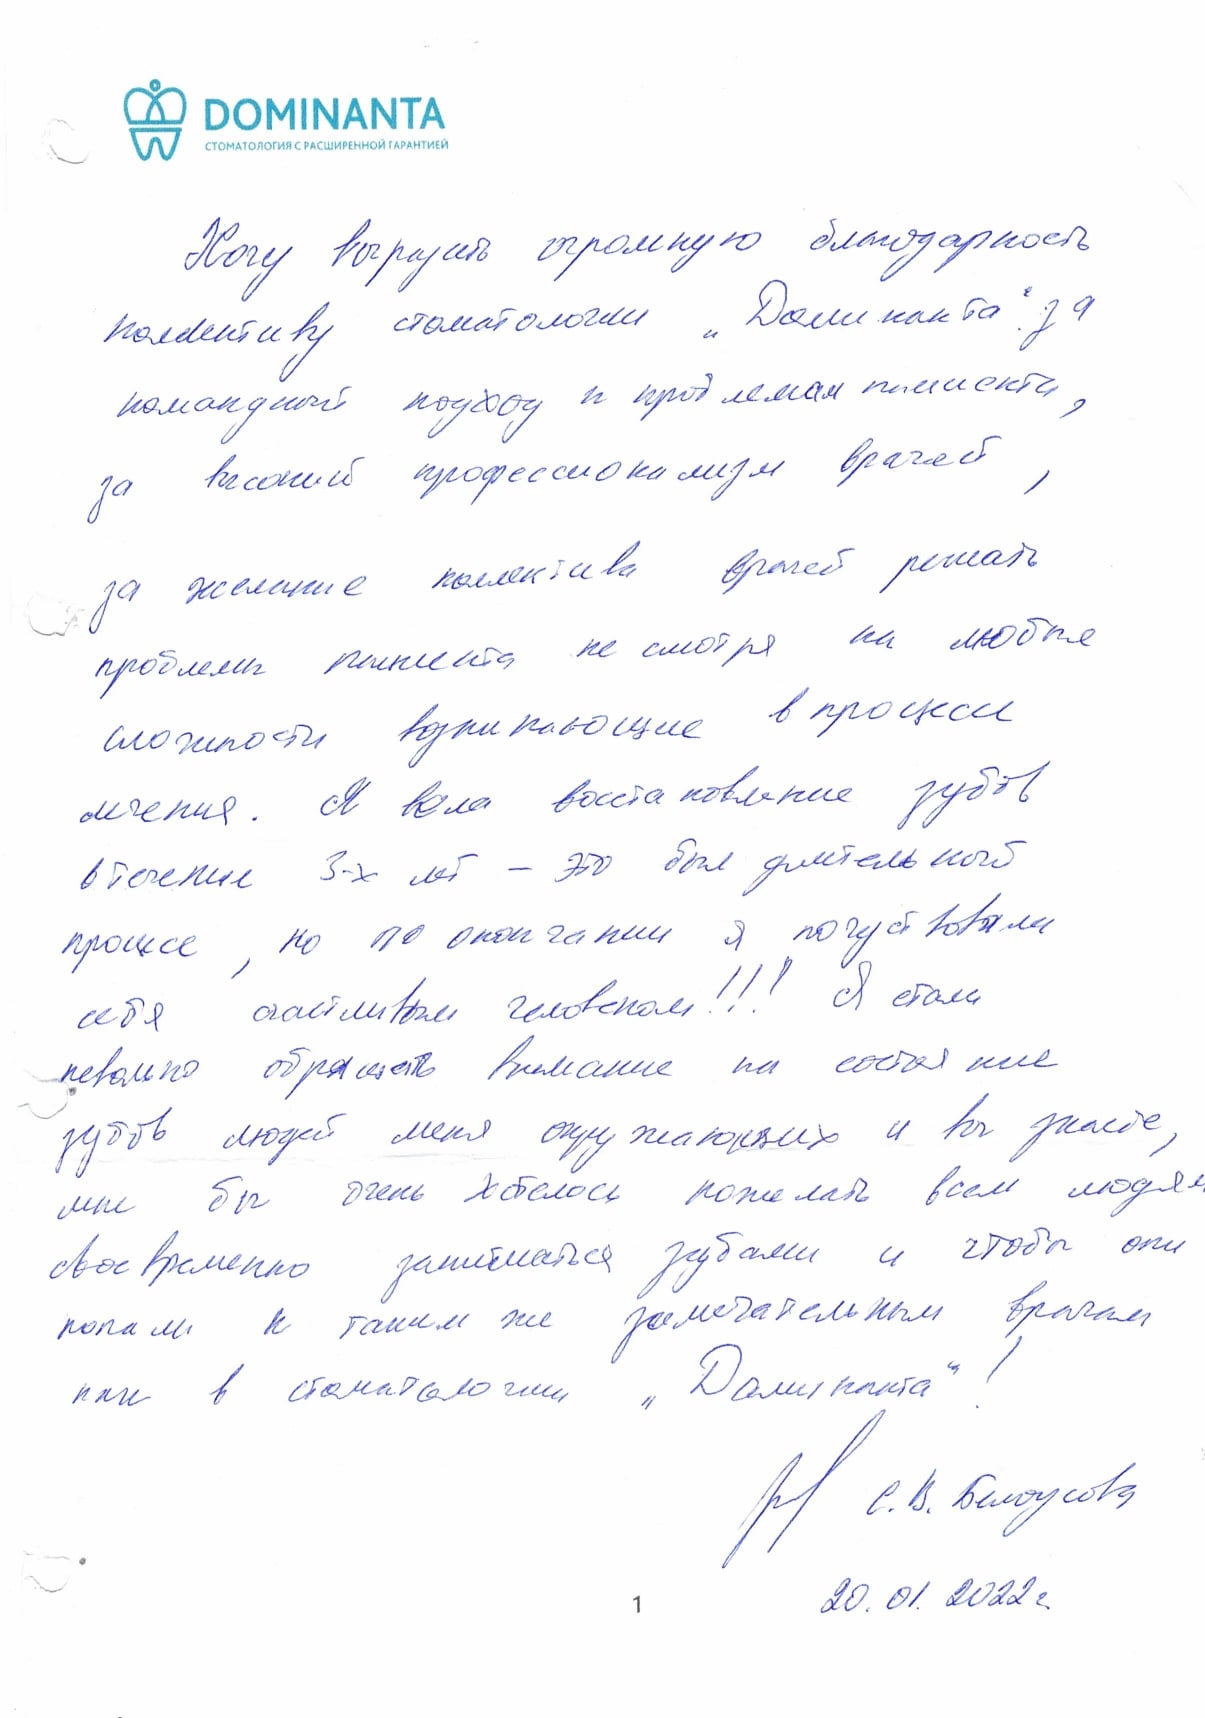 DOMINANTA
СТОМАТОЛОГИЯ С РАСШИРЕННОЙ ГАРАНТИЕЙ
Хочу выразить огромную благодарность
коллективу стоматологии „Доминанта“ за
командный подход к проблемам пациента,
за высокий профессионализм врачей,
за желание коллектива врачей решать
проблемы пациента не смотря на любые
сложности возникающие в процессе
лечения. Я вела восстановление зубов
в течение 3-х лет – это был длительный
процесс, но по окончании я почуствовала
себя счастливым человеком!!! Я стала
невольно обращать внимание на состояние
зубов людей меня окружающих и вы знаете,
мне бы очень хотелось пожелать всем людям
своевременно заниматься зубами и чтобы они
попали к таким же замечательным врачам
как в стоматологии „Доминанта“!
С. В. Белоусова
20.01.2022 г.
1